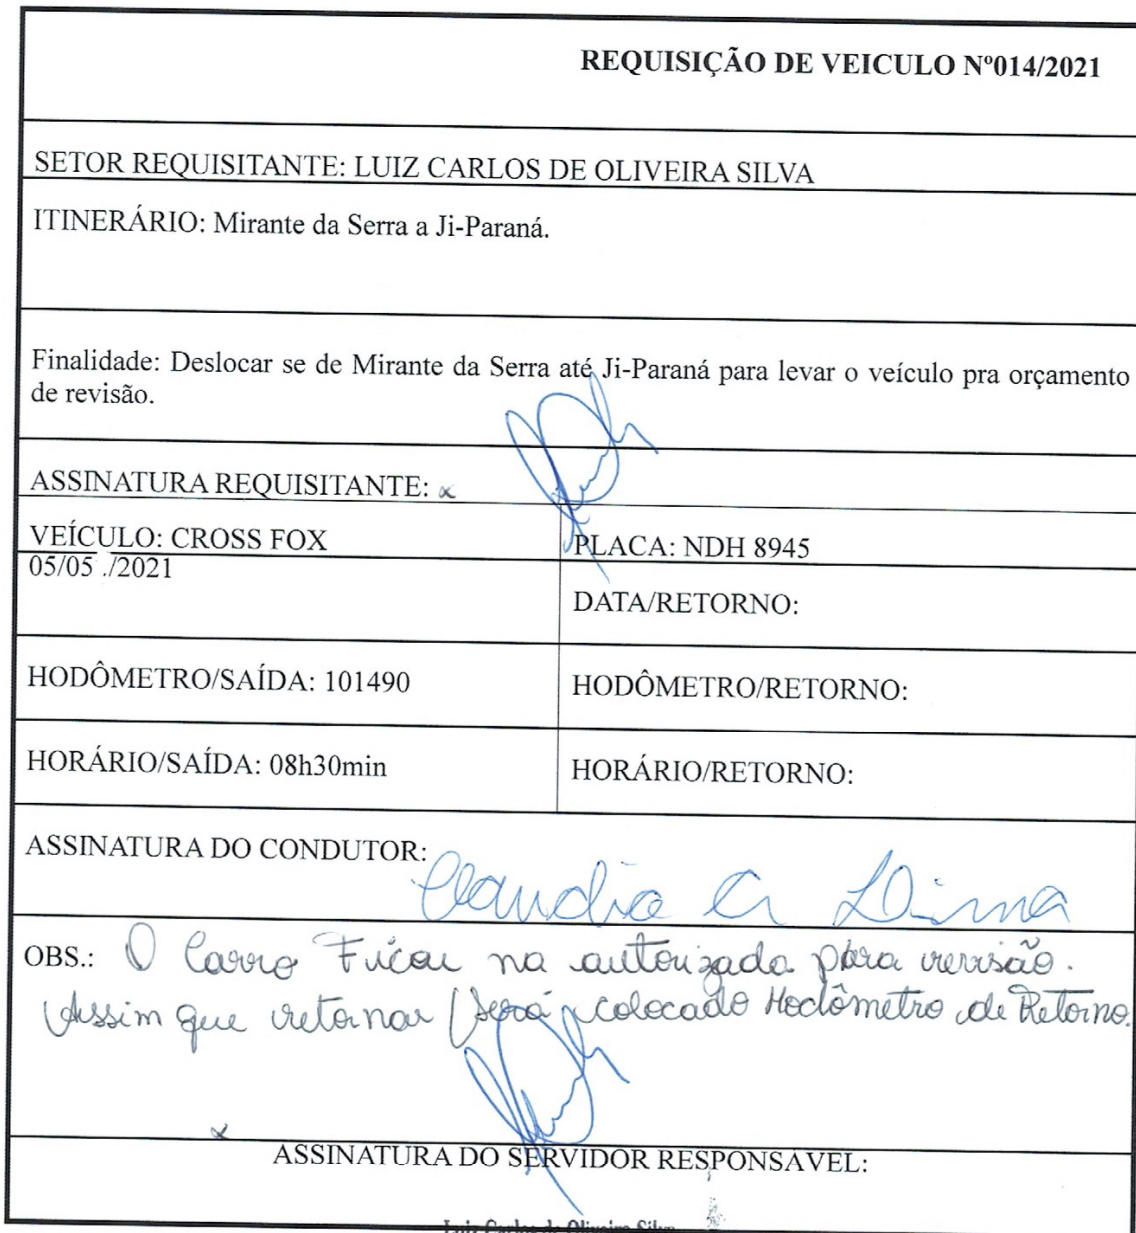 REQUISIÇÃO DE VEICULO Nº014/2021
SETOR REQUISITANTE: LUIZ CARLOS DE OLIVEIRA SILVA
ITINERÁRIO: Mirante da Serra a Ji-Paraná.
Finalidade: Deslocar se de Mirante da Serra até Ji-Paraná para levar o veículo pra orçamento
de revisão.
ASSINATURA REQUISITANTE: x
VEÍCULO: CROSS FOX
PLACA: NDH 8945
05/05 ./2021
DATA/RETORNO:
HODÔMETRO/SAÍDA: 101490
HODÔMETRO/RETORNO:
HORÁRIO/SAÍDA: 08h30min
HORÁRIO/RETORNO:
ASSINATURA DO CONDUTOR: Claudia A Lima
OBS.: O Carro Ficou na autorizada para revisão.
Assim que retornar será colocado Hodômetro de Retorno.
x
ASSINATURA DO SERVIDOR RESPONSÁVEL:
Luiz Carlos de Oliveira Silva